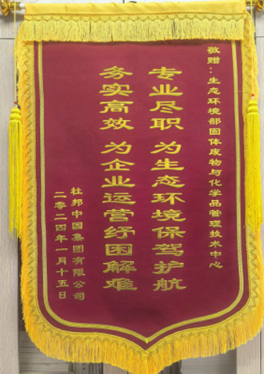 敬赠：生态环境部固体废物与化学品管理技术中心
专业尽职 为生态环境保驾护航
务实高效 为企业运营纾困解难
杜邦中国集团有限公司
二零二四年一月十五日